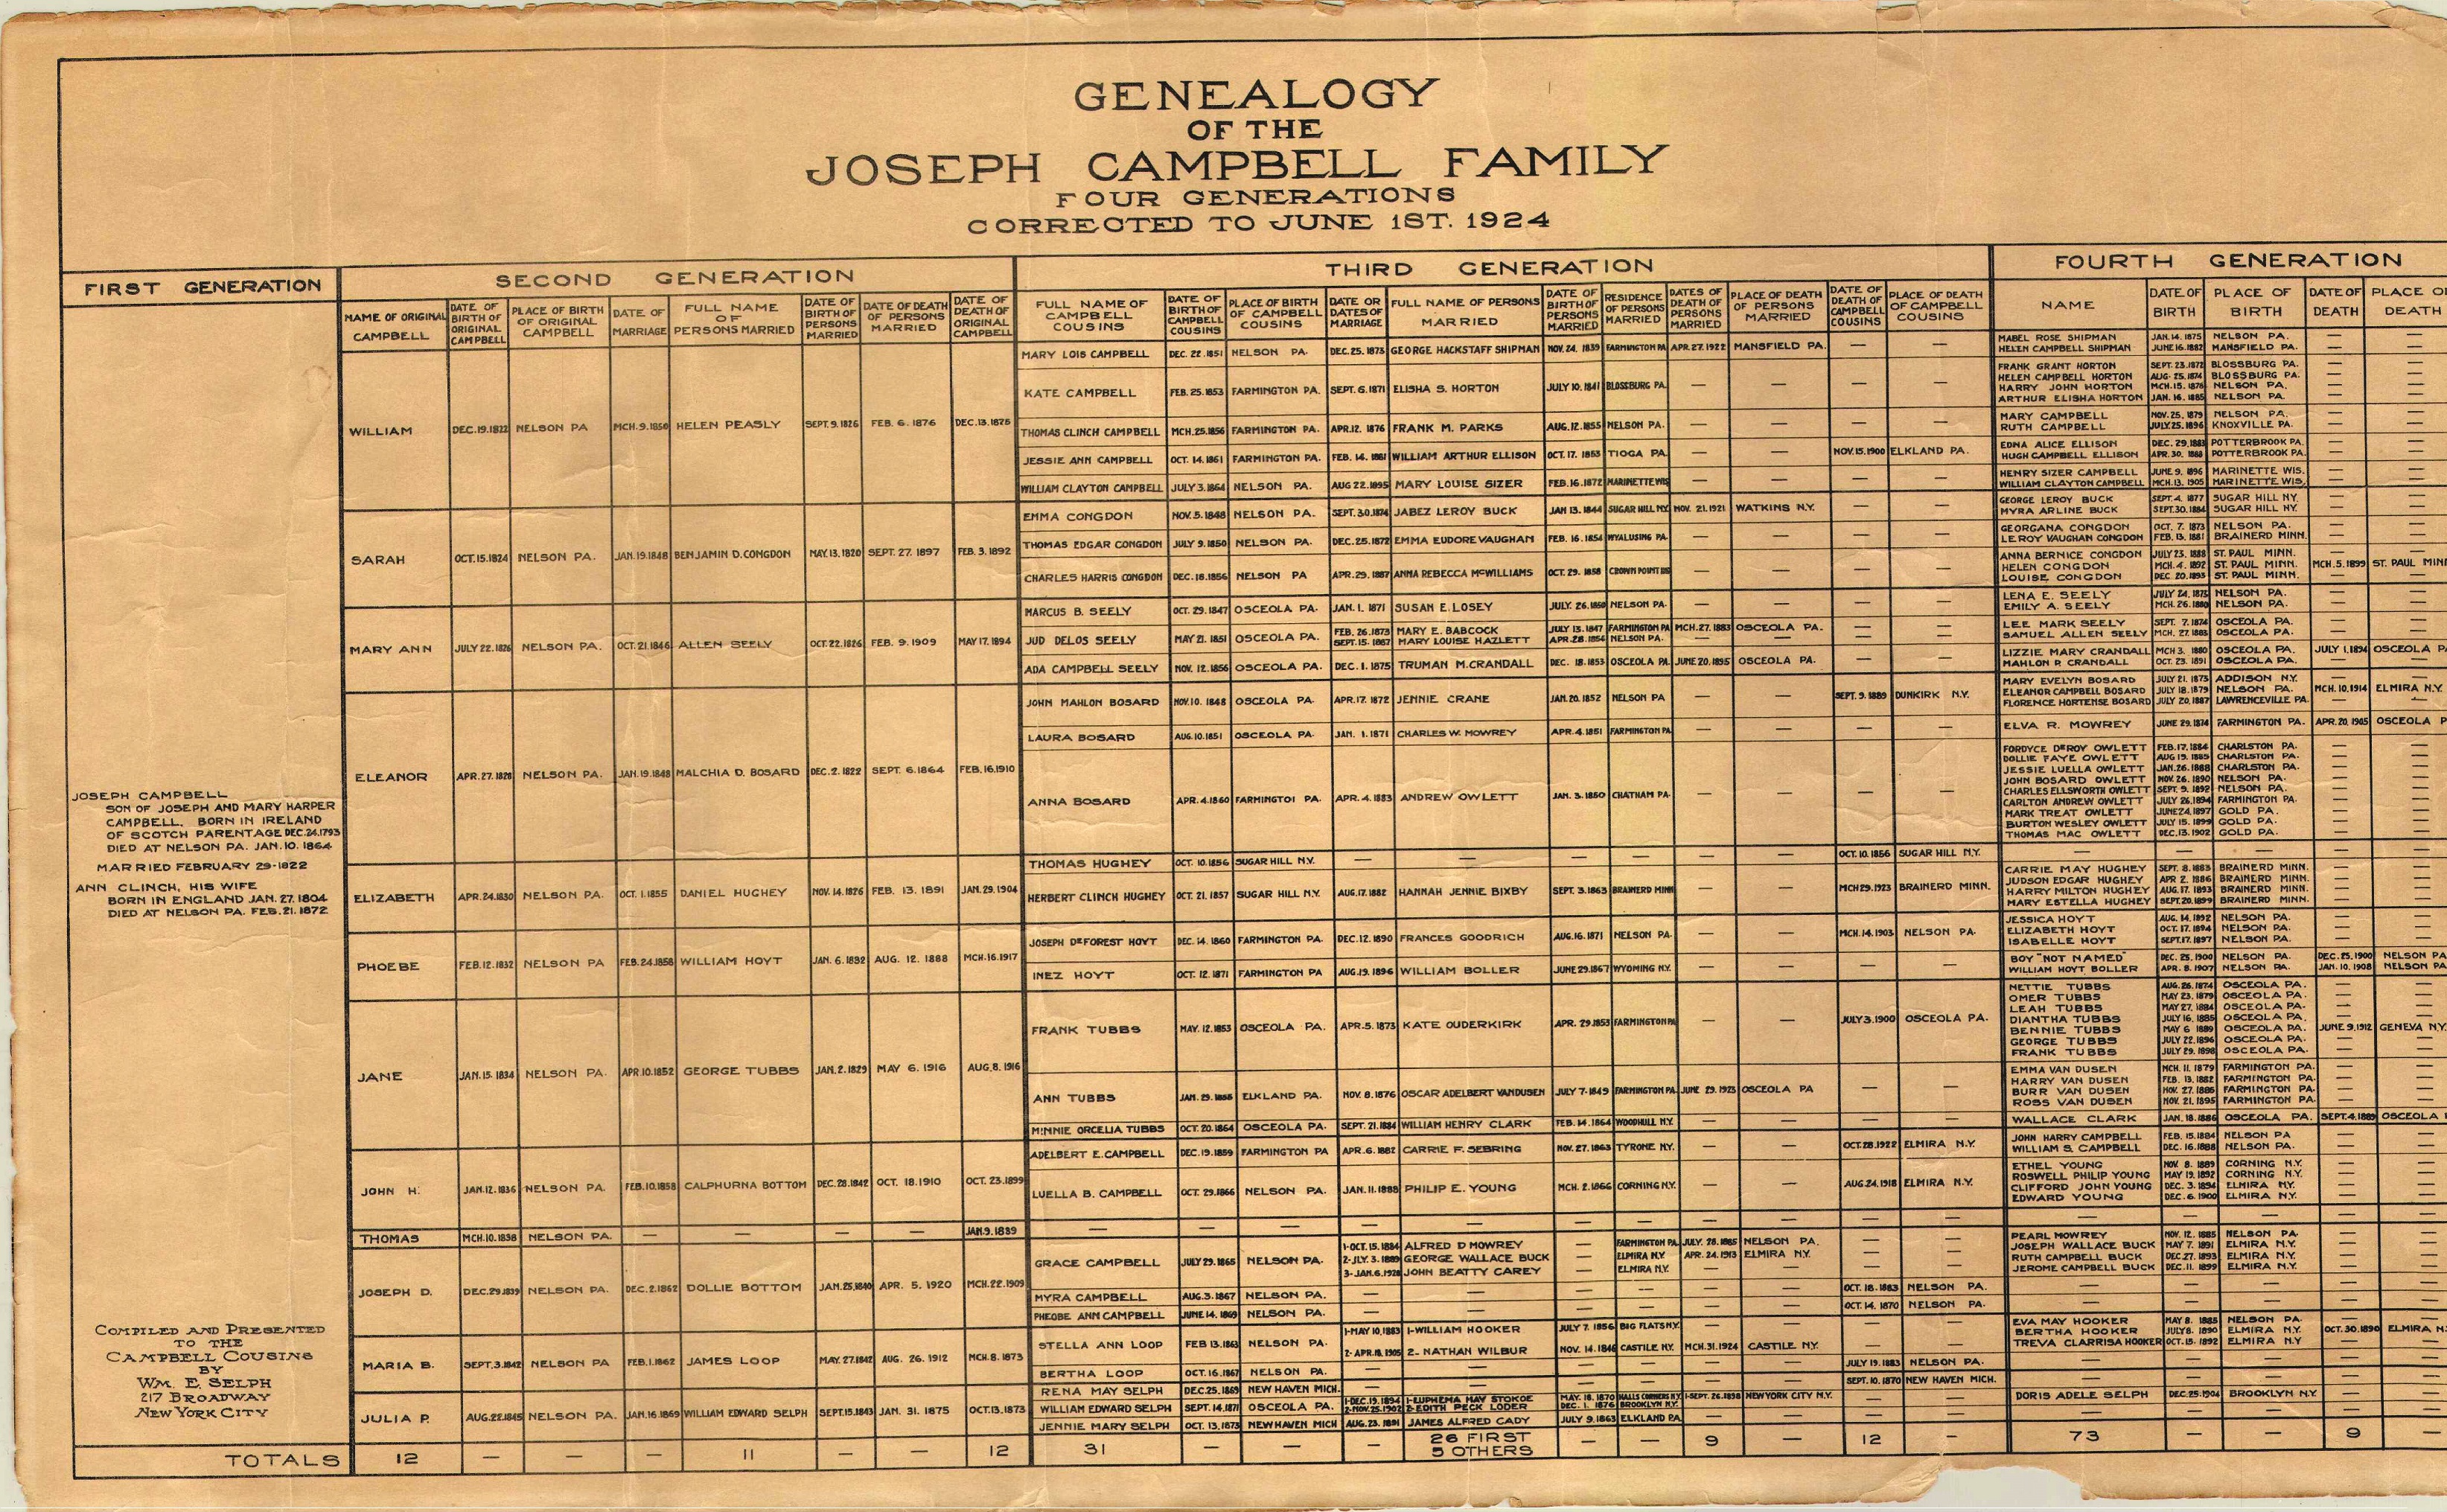 GENEALOGY
OF THE
JOSEPH CAMPBELL FAMILY
FOUR GENERATIONS
CORRECTED TO JUNE 1ST. 1924
FIRST GENERATION
SECOND GENERATION
THIRD GENERATION
FOURTH GENERATION
NAME OF ORIGINAL CAMPBELL
DATE OF BIRTH OF ORIGINAL CAMPBELL
PLACE OF BIRTH OF ORIGINAL CAMPBELL
DATE OF MARRIAGE
FULL NAME OF PERSONS MARRIED
DATE OF BIRTH OF PERSONS MARRIED
DATE OF DEATH OF PERSONS MARRIED
DATE OF DEATH OF ORIGINAL CAMPBELL
FULL NAME OF CAMPBELL COUSINS
DATE OF BIRTH OF CAMPBELL COUSINS
PLACE OF BIRTH OF CAMPBELL COUSINS
DATE OR DATES OF MARRIAGE
FULL NAME OF PERSONS MARRIED
DATE OF BIRTH OF PERSONS MARRIED
RESIDENCE OF PERSONS MARRIED
DATES OF DEATH OF PERSONS MARRIED
PLACE OF DEATH OF PERSONS MARRIED
DATE OF DEATH OF CAMPBELL COUSINS
PLACE OF DEATH OF CAMPBELL COUSINS
NAME
DATE OF BIRTH
PLACE OF BIRTH
DATE OF DEATH
PLACE O
DEATH
JOSEPH CAMPBELL
SON OF JOSEPH AND MARY HARPER
CAMPBELL. BORN IN IRELAND
OF SCOTCH PARENTAGE DEC.24.1793
DIED AT NELSON PA. JAN.10.1864
MARRIED FEBRUARY 29-1822
ANN CLINCH, HIS WIFE
BORN IN ENGLAND JAN.27.1804
DIED AT NELSON PA. FEB.21.1872
COMPILED AND PRESENTED
TO THE
CAMPBELL COUSINS
BY
WM. E. SELPH
217 BROADWAY
NEW YORK CITY
WILLIAM DEC.19.1822 NELSON PA MCH.9.1850 HELEN PEASLY SEPT.9.1826 FEB.6.1876 DEC.13.1876
SARAH OCT.15.1824 NELSON PA. JAN.19.1848 BENJAMIN D. CONGDON MAY.13.1820 SEPT.27.1897 FEB.3.1892
MARY ANN JULY 22.1826 NELSON PA. OCT.21.1846 ALLEN SEELY OCT.22.1826 FEB.9.1909 MAY 17.1894
ELEANOR APR.27.1828 NELSON PA. JAN.19.1848 MALCHIA D. BOSARD DEC.2.1822 SEPT.6.1864 FEB.16.1910
ELIZABETH APR.24.1830 NELSON PA. OCT.1.1855 DANIEL HUGHEY NOV.14.1826 FEB.13.1891 JAN.29.1904
PHOEBE FEB.12.1832 NELSON PA FEB.24.1858 WILLIAM HOYT JAN.6.1832 AUG.12.1888 MCH.16.1917
JANE JAN.15.1834 NELSON PA. APR.10.1852 GEORGE TUBBS JAN.2.1829 MAY 6.1916 AUG.8.1916
JOHN H. JAN.12.1836 NELSON PA. FEB.10.1858 CALPHURNA BOTTOM DEC.28.1842 OCT.18.1910 OCT.23.1899
THOMAS MCH.10.1838 NELSON PA. — — — — JAN.9.1839
JOSEPH D. DEC.29.1839 NELSON PA. DEC.2.1862 DOLLIE BOTTOM JAN.25.1840 APR.5.1920 MCH.22.1909
MARIA B. SEPT.3.1842 NELSON PA FEB.1.1862 JAMES LOOP MAY.27.1842 AUG.26.1912 MCH.8.1873
JULIA P. AUG.22.1845 NELSON PA. JAN.16.1869 WILLIAM EDWARD SELPH SEPT.15.1843 JAN.31.1875 OCT.13.1873
MARY LOIS CAMPBELL DEC.22.1851 NELSON PA. DEC.25.1873 GEORGE HACKSTAFF SHIPMAN NOV.24.1839 FARMINGTON PA APR.27.1922 MANSFIELD PA. — —
KATE CAMPBELL FEB.25.1853 FARMINGTON PA. SEPT.6.1871 ELISHA S. HORTON JULY 10.1841 BLOSSBURG PA. — — — —
THOMAS CLINCH CAMPBELL MCH.25.1856 FARMINGTON PA. APR.12.1876 FRANK M. PARKS AUG.12.1855 NELSON PA. — — — —
JESSIE ANN CAMPBELL OCT.14.1861 FARMINGTON PA. FEB.14.1881 WILLIAM ARTHUR ELLISON OCT.17.1853 TIOGA PA. — — NOV.15.1900 ELKLAND PA.
WILLIAM CLAYTON CAMPBELL JULY 3.1864 NELSON PA. AUG 22.1895 MARY LOUISE SIZER FEB.16.1872 MARINETTE WIS — — — —
EMMA CONGDON NOV.5.1848 NELSON PA. SEPT.30.1874 JABEZ LEROY BUCK JAN 13.1844 SUGAR HILL N.Y. NOV.21.1921 WATKINS N.Y. — —
THOMAS EDGAR CONGDON JULY 9.1850 NELSON PA. DEC.25.1872 EMMA EUDORE VAUGHAN FEB.16.1854 WYALUSING PA. — — — —
CHARLES HARRIS CONGDON DEC.18.1856 NELSON PA APR.29.1887 ANNA REBECCA McWILLIAMS OCT.29.1858 CROWN POINT — — — —
MARCUS B. SEELY OCT.29.1847 OSCEOLA PA. JAN.1.1871 SUSAN E. LOSEY JULY.26.1850 NELSON PA. — — — —
JUD DELOS SEELY MAY 21.1851 OSCEOLA PA. FEB.26.1873 MARY E. BABCOCK JULY 13.1847 FARMINGTON PA MCH.27.1883 OSCEOLA PA. — —
SEPT.15.1887 MARY LOUISE HAZLETT APR.28.1854 NELSON PA. — — — —
ADA CAMPBELL SEELY NOV.12.1856 OSCEOLA PA. DEC.1.1875 TRUMAN M. CRANDALL DEC.18.1853 OSCEOLA PA. JUNE 20.1895 OSCEOLA PA. — —
JOHN MAHLON BOSARD NOV.10.1848 OSCEOLA PA. APR.17.1872 JENNIE CRANE JAN.20.1852 NELSON PA — — SEPT.9.1889 DUNKIRK N.Y.
LAURA BOSARD AUG.10.1851 OSCEOLA PA. JAN.1.1871 CHARLES W. MOWREY APR.4.1851 FARMINGTON PA — — — —
ANNA BOSARD APR.4.1860 FARMINGTOI PA. APR.4.1883 ANDREW OWLETT JAN.3.1850 CHATHAM PA. — — — —
THOMAS HUGHEY OCT.10.1856 SUGAR HILL N.Y. — — — — — — OCT.10.1856 SUGAR HILL N.Y.
HERBERT CLINCH HUGHEY OCT.21.1857 SUGAR HILL N.Y. AUG.17.1882 HANNAH JENNIE BIXBY SEPT.3.1863 BRAINERD MINN — — MCH 29.1923 BRAINERD MINN.
JOSEPH DEFOREST HOYT DEC.14.1860 FARMINGTON PA. DEC.12.1890 FRANCES GOODRICH AUG.16.1871 NELSON PA. — — MCH.14.1903 NELSON PA.
INEZ HOYT OCT.12.1871 FARMINGTON PA AUG.19.1896 WILLIAM BOLLER JUNE 29.1867 WYOMING N.Y. — — — —
FRANK TUBBS MAY.12.1853 OSCEOLA PA. APR.5.1873 KATE OUDERKIRK APR.29.1853 FARMINGTON PA — — JULY 3.1900 OSCEOLA PA.
ANN TUBBS JAN.29. ELKLAND PA. NOV.8.1876 OSCAR ADELBERT VANDUSEN JULY 7.1849 FARMINGTON PA. JUNE 29.1923 OSCEOLA PA — —
MINNIE ORCELIA TUBBS OCT.20.1864 OSCEOLA PA. SEPT.21.1884 WILLIAM HENRY CLARK FEB.14.1864 WOODHULL N.Y. — — — —
ADELBERT E. CAMPBELL DEC.19.1859 FARMINGTON PA APR.6.1882 CARRIE F. SEBRING NOV.27.1863 TYRONE N.Y. — — OCT.28.1922 ELMIRA N.Y.
LUELLA B. CAMPBELL OCT.29.1866 NELSON PA. JAN.11.1888 PHILIP E. YOUNG MCH.2.1866 CORNING N.Y. — — AUG.24.1918 ELMIRA N.Y.
— — — — — — — — — — —
GRACE CAMPBELL JULY 29.1865 NELSON PA. 1-OCT.15.1884 ALFRED D MOWREY — FARMINGTON PA. JULY.28.1885 NELSON PA. — —
2-JLY.3.1889 GEORGE WALLACE BUCK — ELMIRA N.Y. APR.24.1913 ELMIRA N.Y. — —
3-JAN.6. JOHN BEATTY CAREY — ELMIRA N.Y. — — — —
MYRA CAMPBELL AUG.3.1867 NELSON PA. — — — — — — OCT.18.1883 NELSON PA.
PHEOBE ANN CAMPBELL JUNE 14.1869 NELSON PA. — — — — — — OCT.14.1870 NELSON PA.
STELLA ANN LOOP FEB 13.1863 NELSON PA. 1-MAY 10.1883 1-WILLIAM HOOKER JULY 7.1856 BIG FLATS N.Y. — — — —
2-APR.18.1905 2-NATHAN WILBUR NOV.14.1846 CASTILE N.Y. MCH.31.1924 CASTILE N.Y. — —
BERTHA LOOP OCT.16.1867 NELSON PA. — — — — — — JULY 19.1883 NELSON PA.
RENA MAY SELPH DEC.25.1869 NEW HAVEN MICH. — — — — — — SEPT.10.1870 NEW HAVEN MICH.
WILLIAM EDWARD SELPH SEPT.14.1871 OSCEOLA PA. 1-DEC.19.1894 1-EUPHEMA MAY STOKOE MAY.18.1870 HALLS CORNERS N.Y. 1-SEPT.26.1898 NEW YORK CITY N.Y. — —
2-NOV.25.1902 2-EDITH PECK LODER DEC.1.1876 BROOKLYN N.Y.
JENNIE MARY SELPH OCT.13.1873 NEW HAVEN MICH AUG.23.1891 JAMES ALFRED CADY JULY 9.1863 ELKLAND PA. — — — —
MABEL ROSE SHIPMAN JAN.14.1875 NELSON PA. — —
HELEN CAMPBELL SHIPMAN JUNE 16.1882 MANSFIELD PA. — —
FRANK GRANT HORTON SEPT.23.1872 BLOSSBURG PA. — —
HELEN CAMPBELL HORTON AUG.25.1874 BLOSSBURG PA. — —
HARRY JOHN HORTON MCH.15.1878 NELSON PA. — —
ARTHUR ELISHA HORTON JAN.16.1885 NELSON PA. — —
MARY CAMPBELL NOV.25.1879 NELSON PA. — —
RUTH CAMPBELL JULY 25.1896 KNOXVILLE PA. — —
EDNA ALICE ELLISON DEC.29.1883 POTTERBROOK PA. — —
HUGH CAMPBELL ELLISON APR.30.1888 POTTERBROOK PA. — —
HENRY SIZER CAMPBELL JUNE 9.1896 MARINETTE WIS. — —
WILLIAM CLAYTON CAMPBELL MCH.13.1905 MARINETTE WIS. — —
GEORGE LEROY BUCK SEPT.4.1877 SUGAR HILL N.Y. — —
MYRA ARLINE BUCK SEPT.30.1884 SUGAR HILL N.Y. — —
GEORGANA CONGDON OCT.7.1873 NELSON PA. — —
LEROY VAUGHAN CONGDON FEB.13.1881 BRAINERD MINN. — —
ANNA BERNICE CONGDON JULY 23.1888 ST. PAUL MINN. — —
HELEN CONGDON MCH.4.1892 ST. PAUL MINN. MCH.5.1899 ST. PAUL MINN
LOUISE CONGDON DEC 20.1893 ST. PAUL MINN. — —
LENA E. SEELY JULY 24.1873 NELSON PA. — —
EMILY A. SEELY MCH.26.1880 NELSON PA. — —
LEE MARK SEELY SEPT.7.1874 OSCEOLA PA. — —
SAMUEL ALLEN SEELY MCH.27.1883 OSCEOLA PA. — —
LIZZIE MARY CRANDALL MCH 3.1880 OSCEOLA PA. JULY 1.1894 OSCEOLA PA
MAHLON P. CRANDALL OCT.23.1891 OSCEOLA PA. — —
MARY EVELYN BOSARD JULY 21.1873 ADDISON N.Y. — —
ELEANOR CAMPBELL BOSARD JULY 18.1879 NELSON PA. MCH.10.1914 ELMIRA N.Y.
FLORENCE HORTENSE BOSARD JULY 20.1887 LAWRENCEVILLE PA. — —
ELVA R. MOWREY JUNE 29.1874 FARMINGTON PA. APR.20.1905 OSCEOLA P
FORDYCE DEROY OWLETT FEB.17.1884 CHARLSTON PA. — —
DOLLIE FAYE OWLETT AUG 19.1885 CHARLSTON PA. — —
JESSIE LUELLA OWLETT JAN.26.1888 CHARLSTON PA. — —
JOHN BOSARD OWLETT NOV.26.1890 NELSON PA. — —
CHARLES ELLSWORTH OWLETT SEPT.9.1892 NELSON PA. — —
CARLTON ANDREW OWLETT JULY 26.1894 FARMINGTON PA. — —
MARK TREAT OWLETT JUNE 24.1897 GOLD PA. — —
BURTON WESLEY OWLETT JULY 15.1899 GOLD PA. — —
THOMAS MAC OWLETT DEC.13.1902 GOLD PA. — —
— — — — —
CARRIE MAY HUGHEY SEPT.8.1883 BRAINERD MINN. — —
JUDSON EDGAR HUGHEY APR 2.1886 BRAINERD MINN. — —
HARRY MILTON HUGHEY AUG.17.1893 BRAINERD MINN. — —
MARY ESTELLA HUGHEY SEPT.20.1899 BRAINERD MINN. — —
JESSICA HOYT AUG.14.1892 NELSON PA. — —
ELIZABETH HOYT OCT.17.1894 NELSON PA. — —
ISABELLE HOYT SEPT.17.1897 NELSON PA. — —
BOY "NOT NAMED" DEC.25.1900 NELSON PA. DEC.25.1900 NELSON PA
WILLIAM HOYT BOLLER APR.8.1907 NELSON PA. JAN.10.1908 NELSON PA
NETTIE TUBBS AUG.26.1874 OSCEOLA PA. — —
OMER TUBBS MAY 23.1879 OSCEOLA PA. — —
LEAH TUBBS MAY 27.1884 OSCEOLA PA. — —
DIANTHA TUBBS JULY 16.1885 OSCEOLA PA. — —
BENNIE TUBBS MAY 6 1889 OSCEOLA PA. JUNE 9.1912 GENEVA N.Y.
GEORGE TUBBS JULY 22.1896 OSCEOLA PA. — —
FRANK TUBBS JULY 29.1898 OSCEOLA PA. — —
EMMA VAN DUSEN MCH.11.1879 FARMINGTON PA. — —
HARRY VAN DUSEN FEB.13.1882 FARMINGTON PA. — —
BURR VAN DUSEN NOV.27.1886 FARMINGTON PA. — —
ROSS VAN DUSEN NOV.21.1895 FARMINGTON PA. — —
WALLACE CLARK JAN.18.1886 OSCEOLA PA. SEPT.4.1889 OSCEOLA
JOHN HARRY CAMPBELL FEB.15.1884 NELSON PA — —
WILLIAM S. CAMPBELL DEC.16.1888 NELSON PA. — —
ETHEL YOUNG NOV.8.1889 CORNING N.Y. — —
ROSWELL PHILIP YOUNG MAY 19.1892 CORNING N.Y. — —
CLIFFORD JOHN YOUNG DEC.3.1894 ELMIRA N.Y. — —
EDWARD YOUNG DEC.6.1900 ELMIRA N.Y. — —
— — — — —
PEARL MOWREY NOV.12.1885 NELSON PA. — —
JOSEPH WALLACE BUCK MAY 7.1891 ELMIRA N.Y. — —
RUTH CAMPBELL BUCK DEC.27.1893 ELMIRA N.Y. — —
JEROME CAMPBELL BUCK DEC.11.1899 ELMIRA N.Y. — —
— — — — —
— — — — —
EVA MAY HOOKER MAY 8.1885 NELSON PA. — —
BERTHA HOOKER JULY 8.1890 ELMIRA N.Y. OCT.30.1890 ELMIRA N.
TREVA CLARRISA HOOKER OCT.15.1892 ELMIRA N.Y — —
— — — — —
— — — — —
DORIS ADELE SELPH DEC.25.1904 BROOKLYN N.Y. — —
— — — — —
TOTALS 12 — — — 11 — — 12 31 — — — 26 FIRST 5 OTHERS — — 9 — 12 — 73 — — 9 —